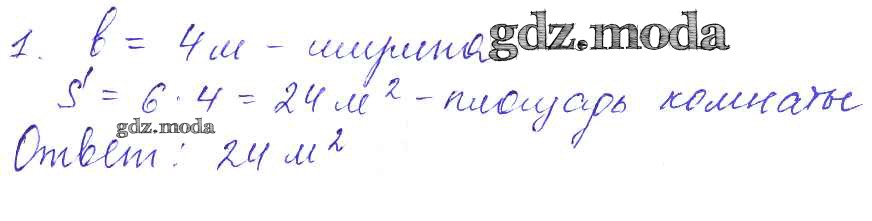 1. b = 4 м - ширина gdz.moda
S = 6 · 4 = 24 м² - площадь комнаты
gdz.moda
Ответ: 24 м²